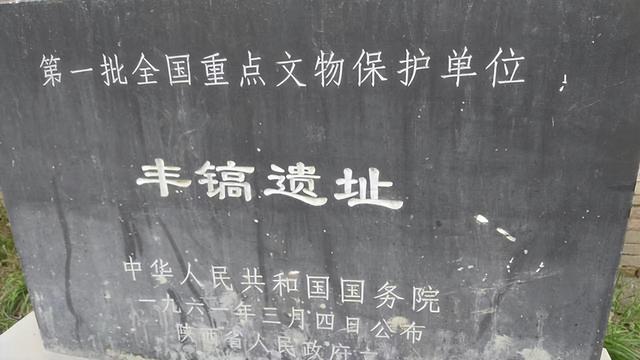 第一批全国重点文物保护单位
丰镐遗址
中华人民共和国国务院
一九六一年三月四日公布
陕西省人民政府